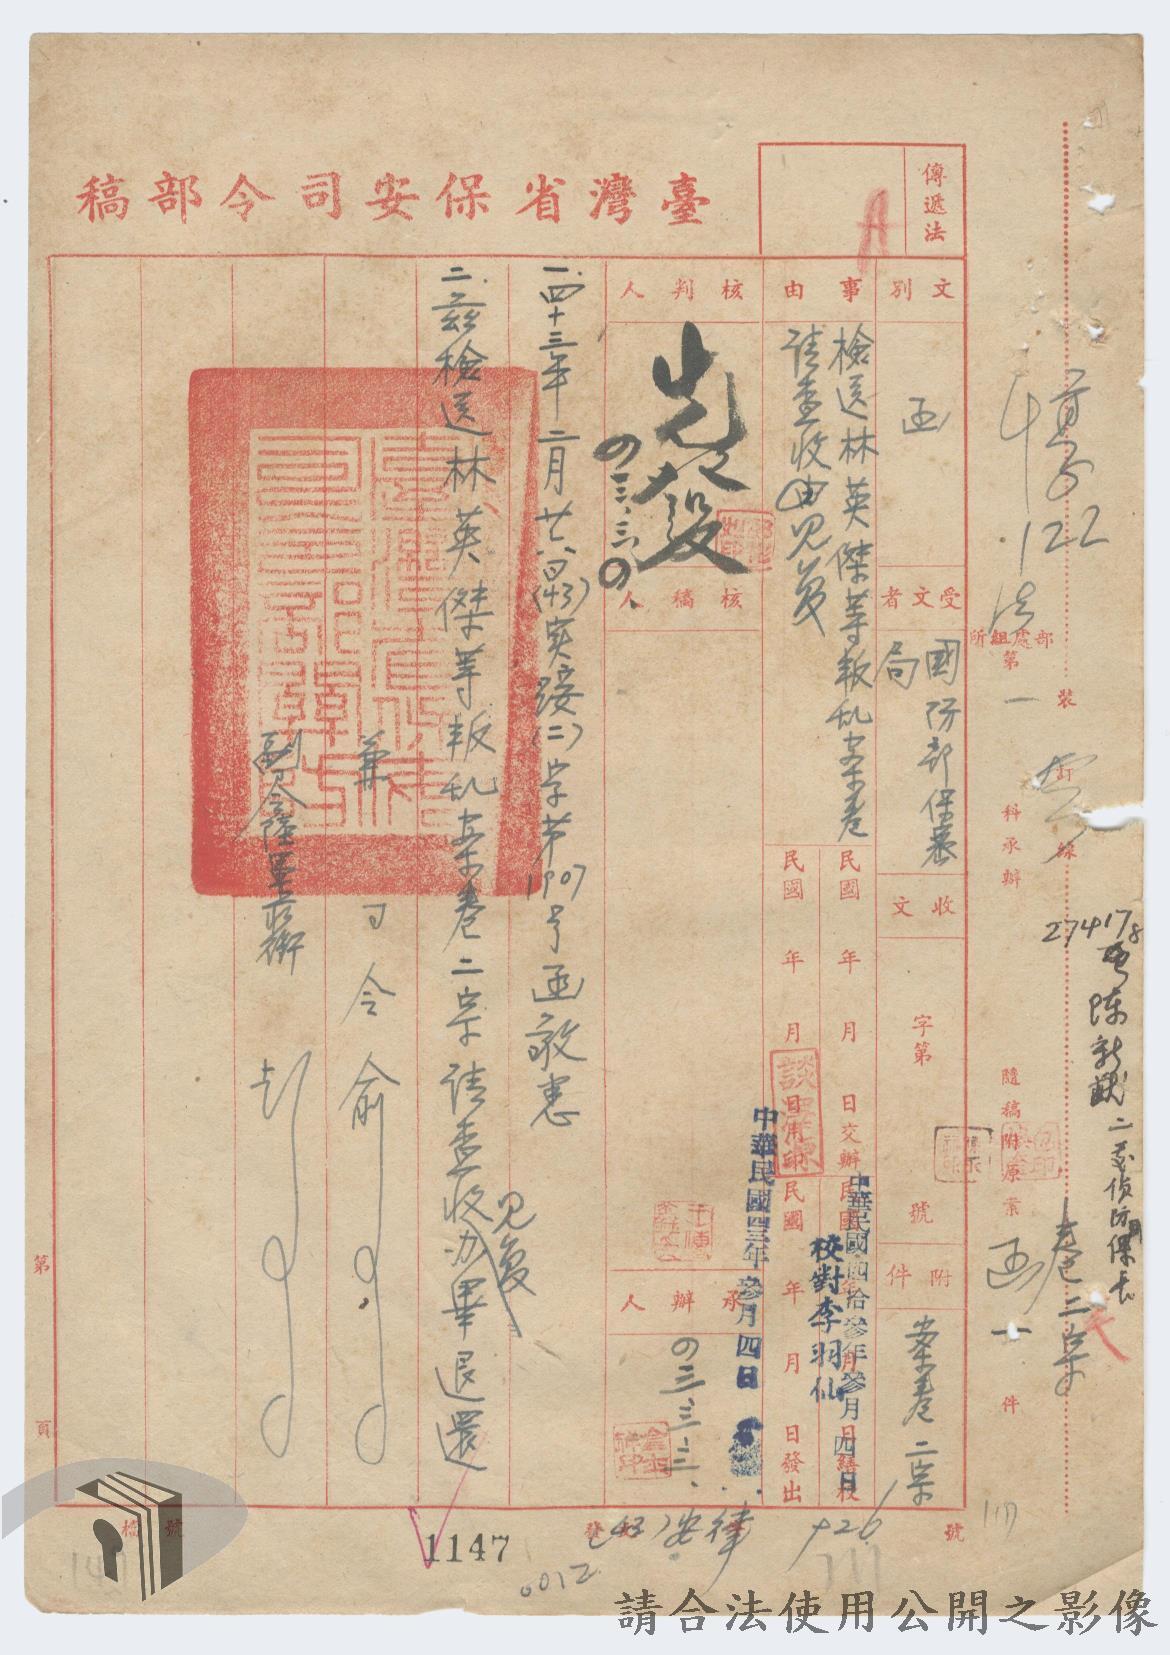 臺灣省保安司令部稿
傳遞法
A
文別
函
受文者
國防部保密局
收文
字第
號
附件
案卷二宗
事由
檢送林英傑等叛乱案卷
請查收由見复
民國 年 月 日交辦
民國 年 月 日繕校
民國 年 月 日用印
民國 年 月 日發出
中華民國四拾參年參月四日
校對李羽仙
中華民國四三年參月四日
核判人
先發
核稿人
承辦人
一、四十三年二月廿六(43)
字第1907号函敬悉
二、茲檢送林英傑等叛乱案卷二宗請查收办畢退還
見复
兼司令俞
副司令陸軍
彭
部處組所
第一科承辦
隨稿附原案
卷二宗
函一件
裝訂線
122
274178
(43)安律
發文
號
1147
0012
檔號
第 頁
請合法使用公開之影像